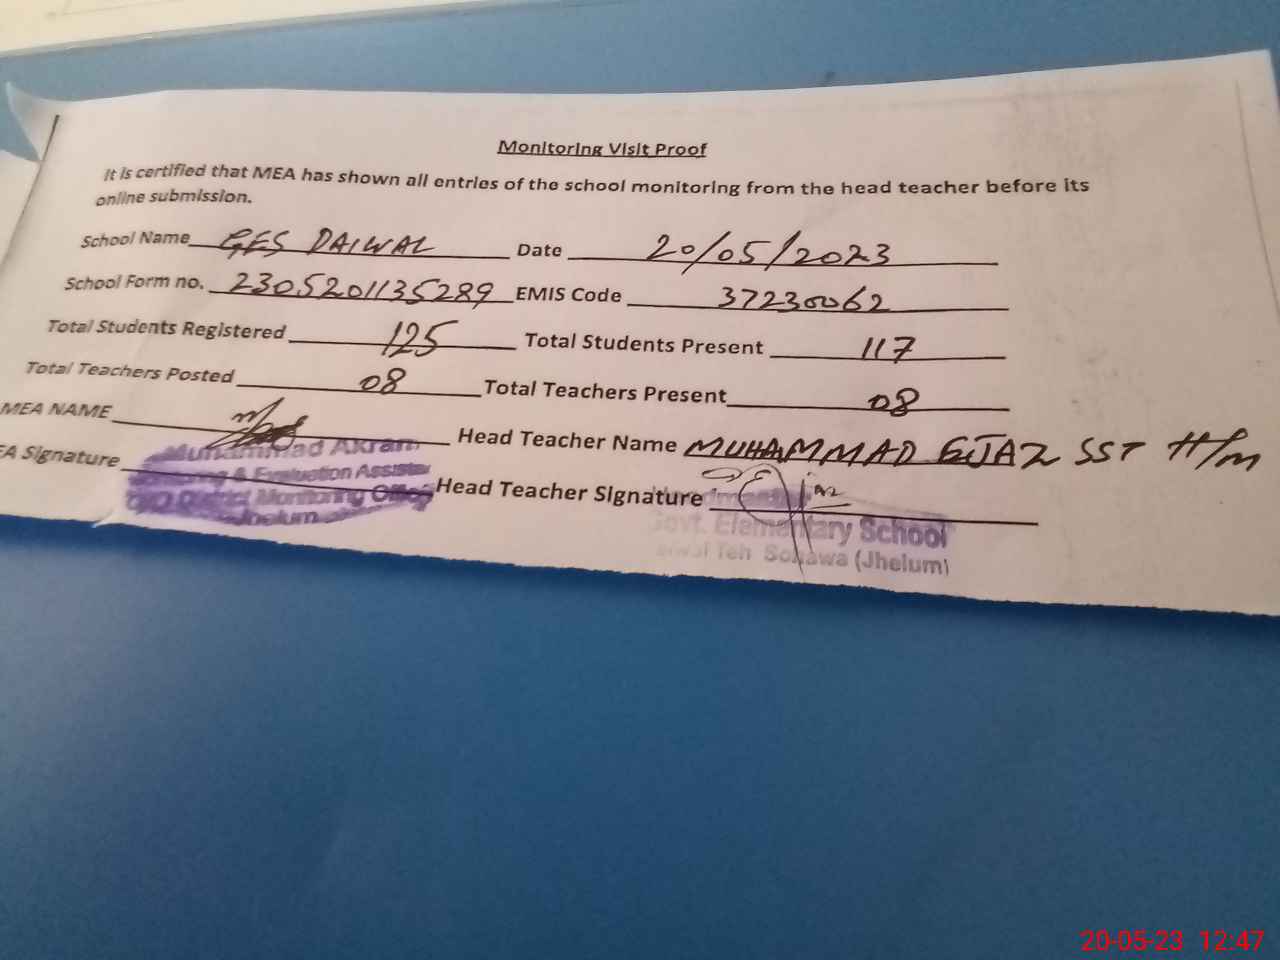 Monitoring Visit Proof
It is certified that MEA has shown all entries of the school monitoring from the head teacher before its
online submission.
School Name GES DAIWAL Date 20/05/2023
School Form no. 2305201135289 EMIS Code 37230062
Total Students Registered 125 Total Students Present 117
Total Teachers Posted 08 Total Teachers Present 08
MEA NAME Head Teacher Name MUHAMMAD EJAZ SST H/m
EA Signature Head Teacher Signature
Muhammad Akram
& Evaluation Assistan
District Monitoring Office
Jhelum
Govt. Elementary School
Teh Sohawa (Jhelum)
20-05-23 12:47